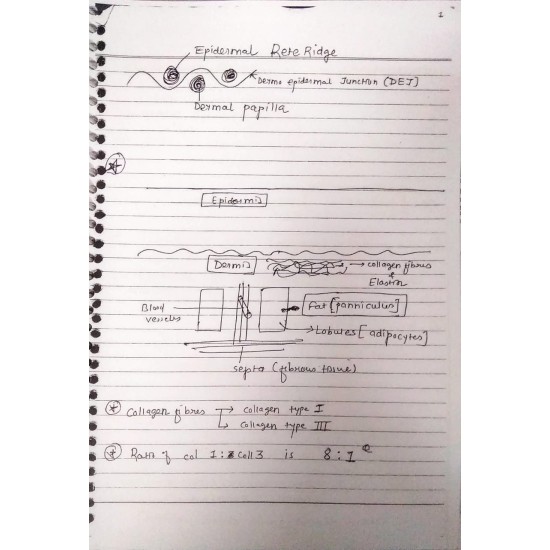 1
Epidermal Rete Ridge
Dermo epidermal Junction (DEJ)
Dermal papilla
Epidermis
Dermis
collagen fibres
&
Elastin
Blood
vessels
Fat [panniculus]
Lobules [adipocytes]
septa (fibrous tissue)
Collagen fibres → collagen type I
↳ collagen type III
Ratio of col 1 : Coll 3 is 8 : 1